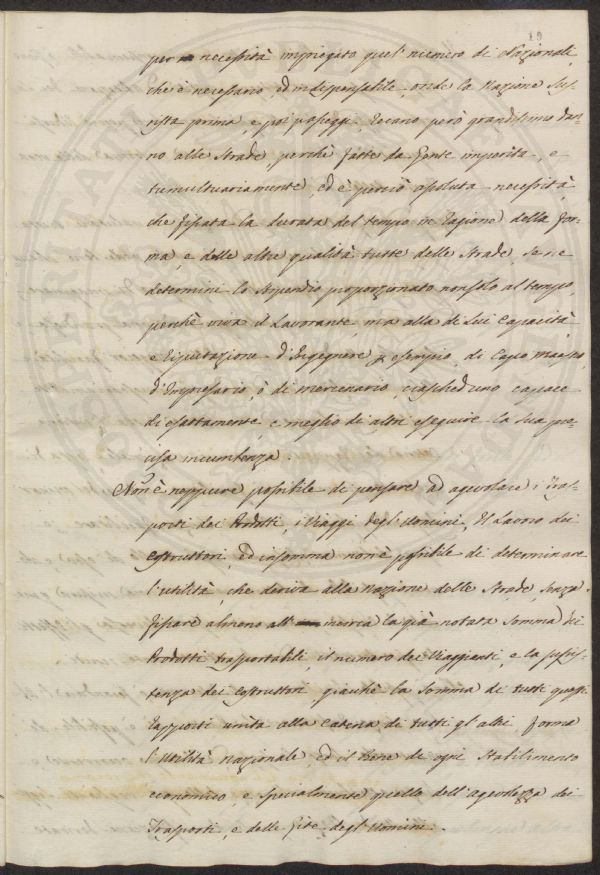 19
per necessità impiegato quel numero di Nazionali
che è necessario, ed indispensabile, onde la Nazione sus-
sista prima, e poi passeggi, recano però grandissimo dan-
no alle Strade, perchè fatte da Gente imperita, e
tumultuariamente, ed è perciò assoluta necessità,
che fissata la durata del tempo in ragione della for-
ma, e delle altre qualità tutte delle Strade se ne
determini lo Stipendio proporzionato non solo al tempo,
perchè viva il Lavorante, ma alla di lui Capacità
e Riputazione d'Ingegnere p. esempio, di Capo Maestro,
d'Impresario, ò di mercenario, ciascheduno capace
di esattamente, e meglio di altri eseguire la sua pre-
cisa incumbenza.
Non è neppure possibile di pensare ad agevolare i Tras-
porti dei Prodotti, i Viaggi degl'Uomini, Il Lavoro dei
Costruttori, ed insomma non è possibile di determinare
l'utilità, che deriva alla Nazione delle Strade, senza
fissare almeno all' incirca la già notata Somma dei
Prodotti trasportabili, il numero dei Viaggianti, e la sussis-
tenza dei Costruttori giacchè la Somma di tutti questi
rapporti unita alla Catena di tutti gl'altri forma
l'Utilità Nazionale ed il Bene di ogni Stabilimento
economico, e specialmente quello dell'agevolezza dei
Trasporti, e delle Gite degl'Uomini.